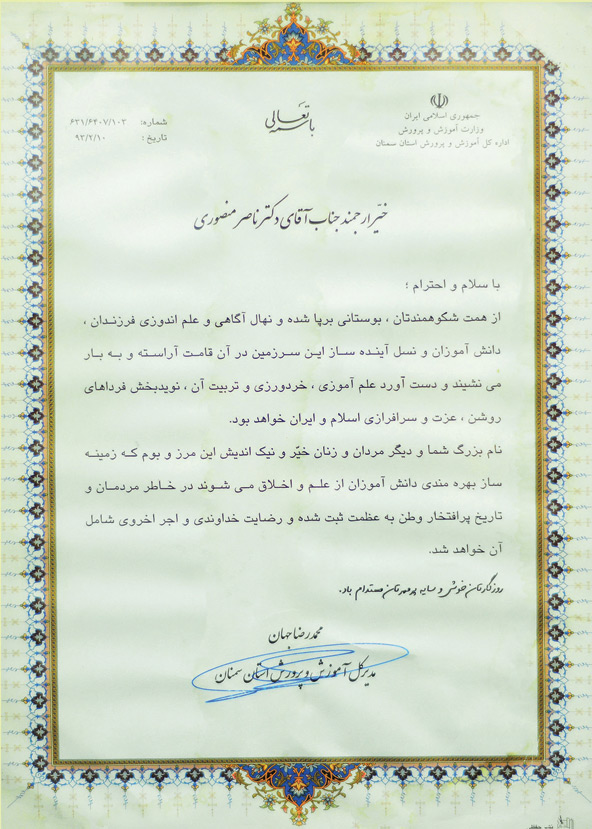 باسمه تعالی
جمهوری اسلامی ایران
وزارت آموزش و پرورش
اداره کل آموزش و پرورش استان سمنان
شماره: ۶۳۱/۶۴۰۷/۱۰۳
تاریخ: ۹۳/۲/۱۰
خیّر ارجمند جناب آقای دکتر ناصر منصوری
با سلام و احترام ؛
از همت شکوهمندتان ، بوستانی برپا شده و نهال آگاهی و علم اندوزی فرزندان ،
دانش آموزان و نسل آینده ساز این سرزمین در آن قامت آراسته و به بار
می نشیند و دست آورد علم آموزی ، خردورزی و تربیت آن ، نویدبخش فرداهای
روشن ، عزت و سرافرازی اسلام و ایران خواهد بود.
نام بزرگ شما و دیگر مردان و زنان خیّر و نیک اندیش این مرز و بوم که زمینه
ساز بهره مندی دانش آموزان از علم و اخلاق می شوند در خاطر مردمان و
تاریخ پرافتخار وطن به عظمت ثبت شده و رضایت خداوندی و اجر اخروی شامل
آن خواهد شد.
روزگارتان خوش و سایه پرمهرتان مستدام باد.
محمدرضا جهان
مدیرکل آموزش و پرورش استان سمنان